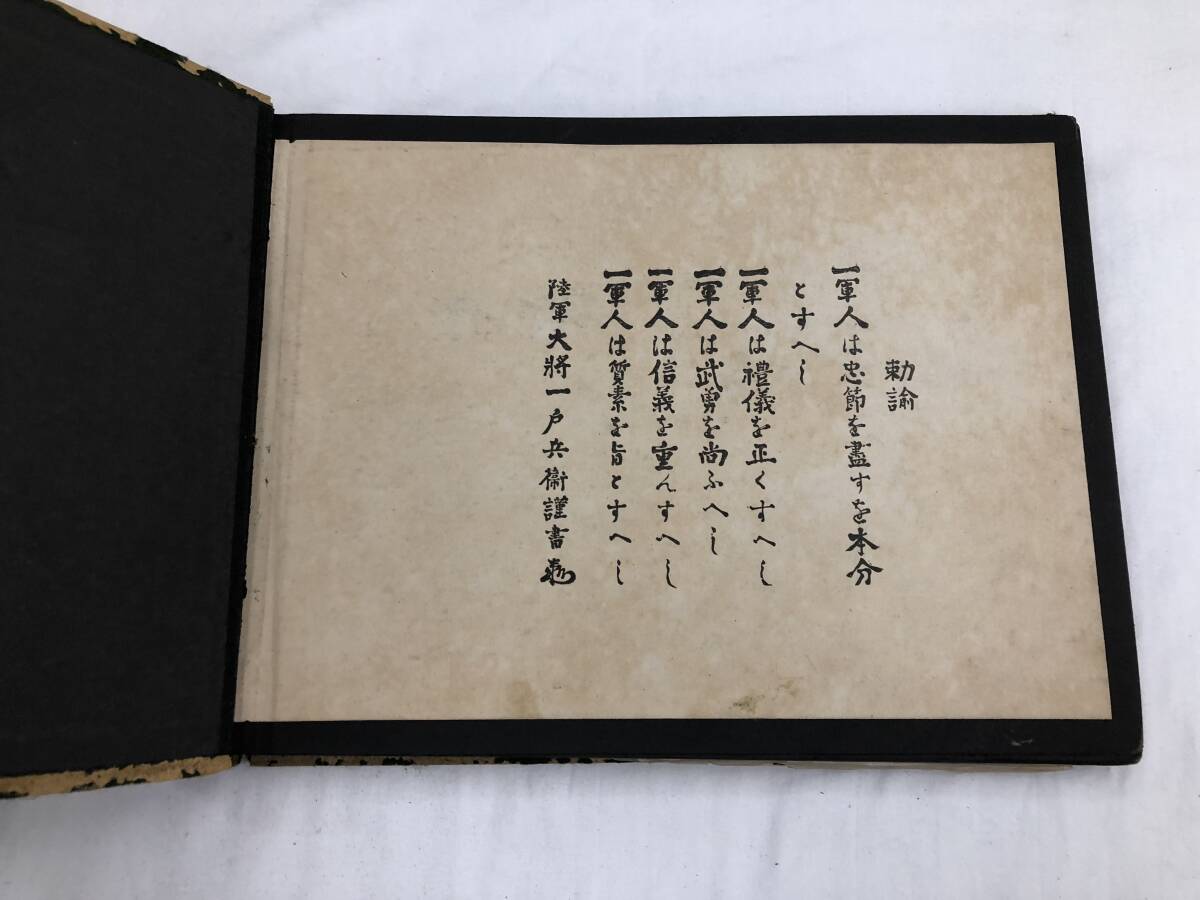 勅諭
一軍人は忠節を盡すを本分
とすへし
一軍人は禮儀を正くすへし
一軍人は武勇を尚ふへし
一軍人は信義を重んすへし
一軍人は質素を旨とすへし
陸軍大將一戸兵衞謹書